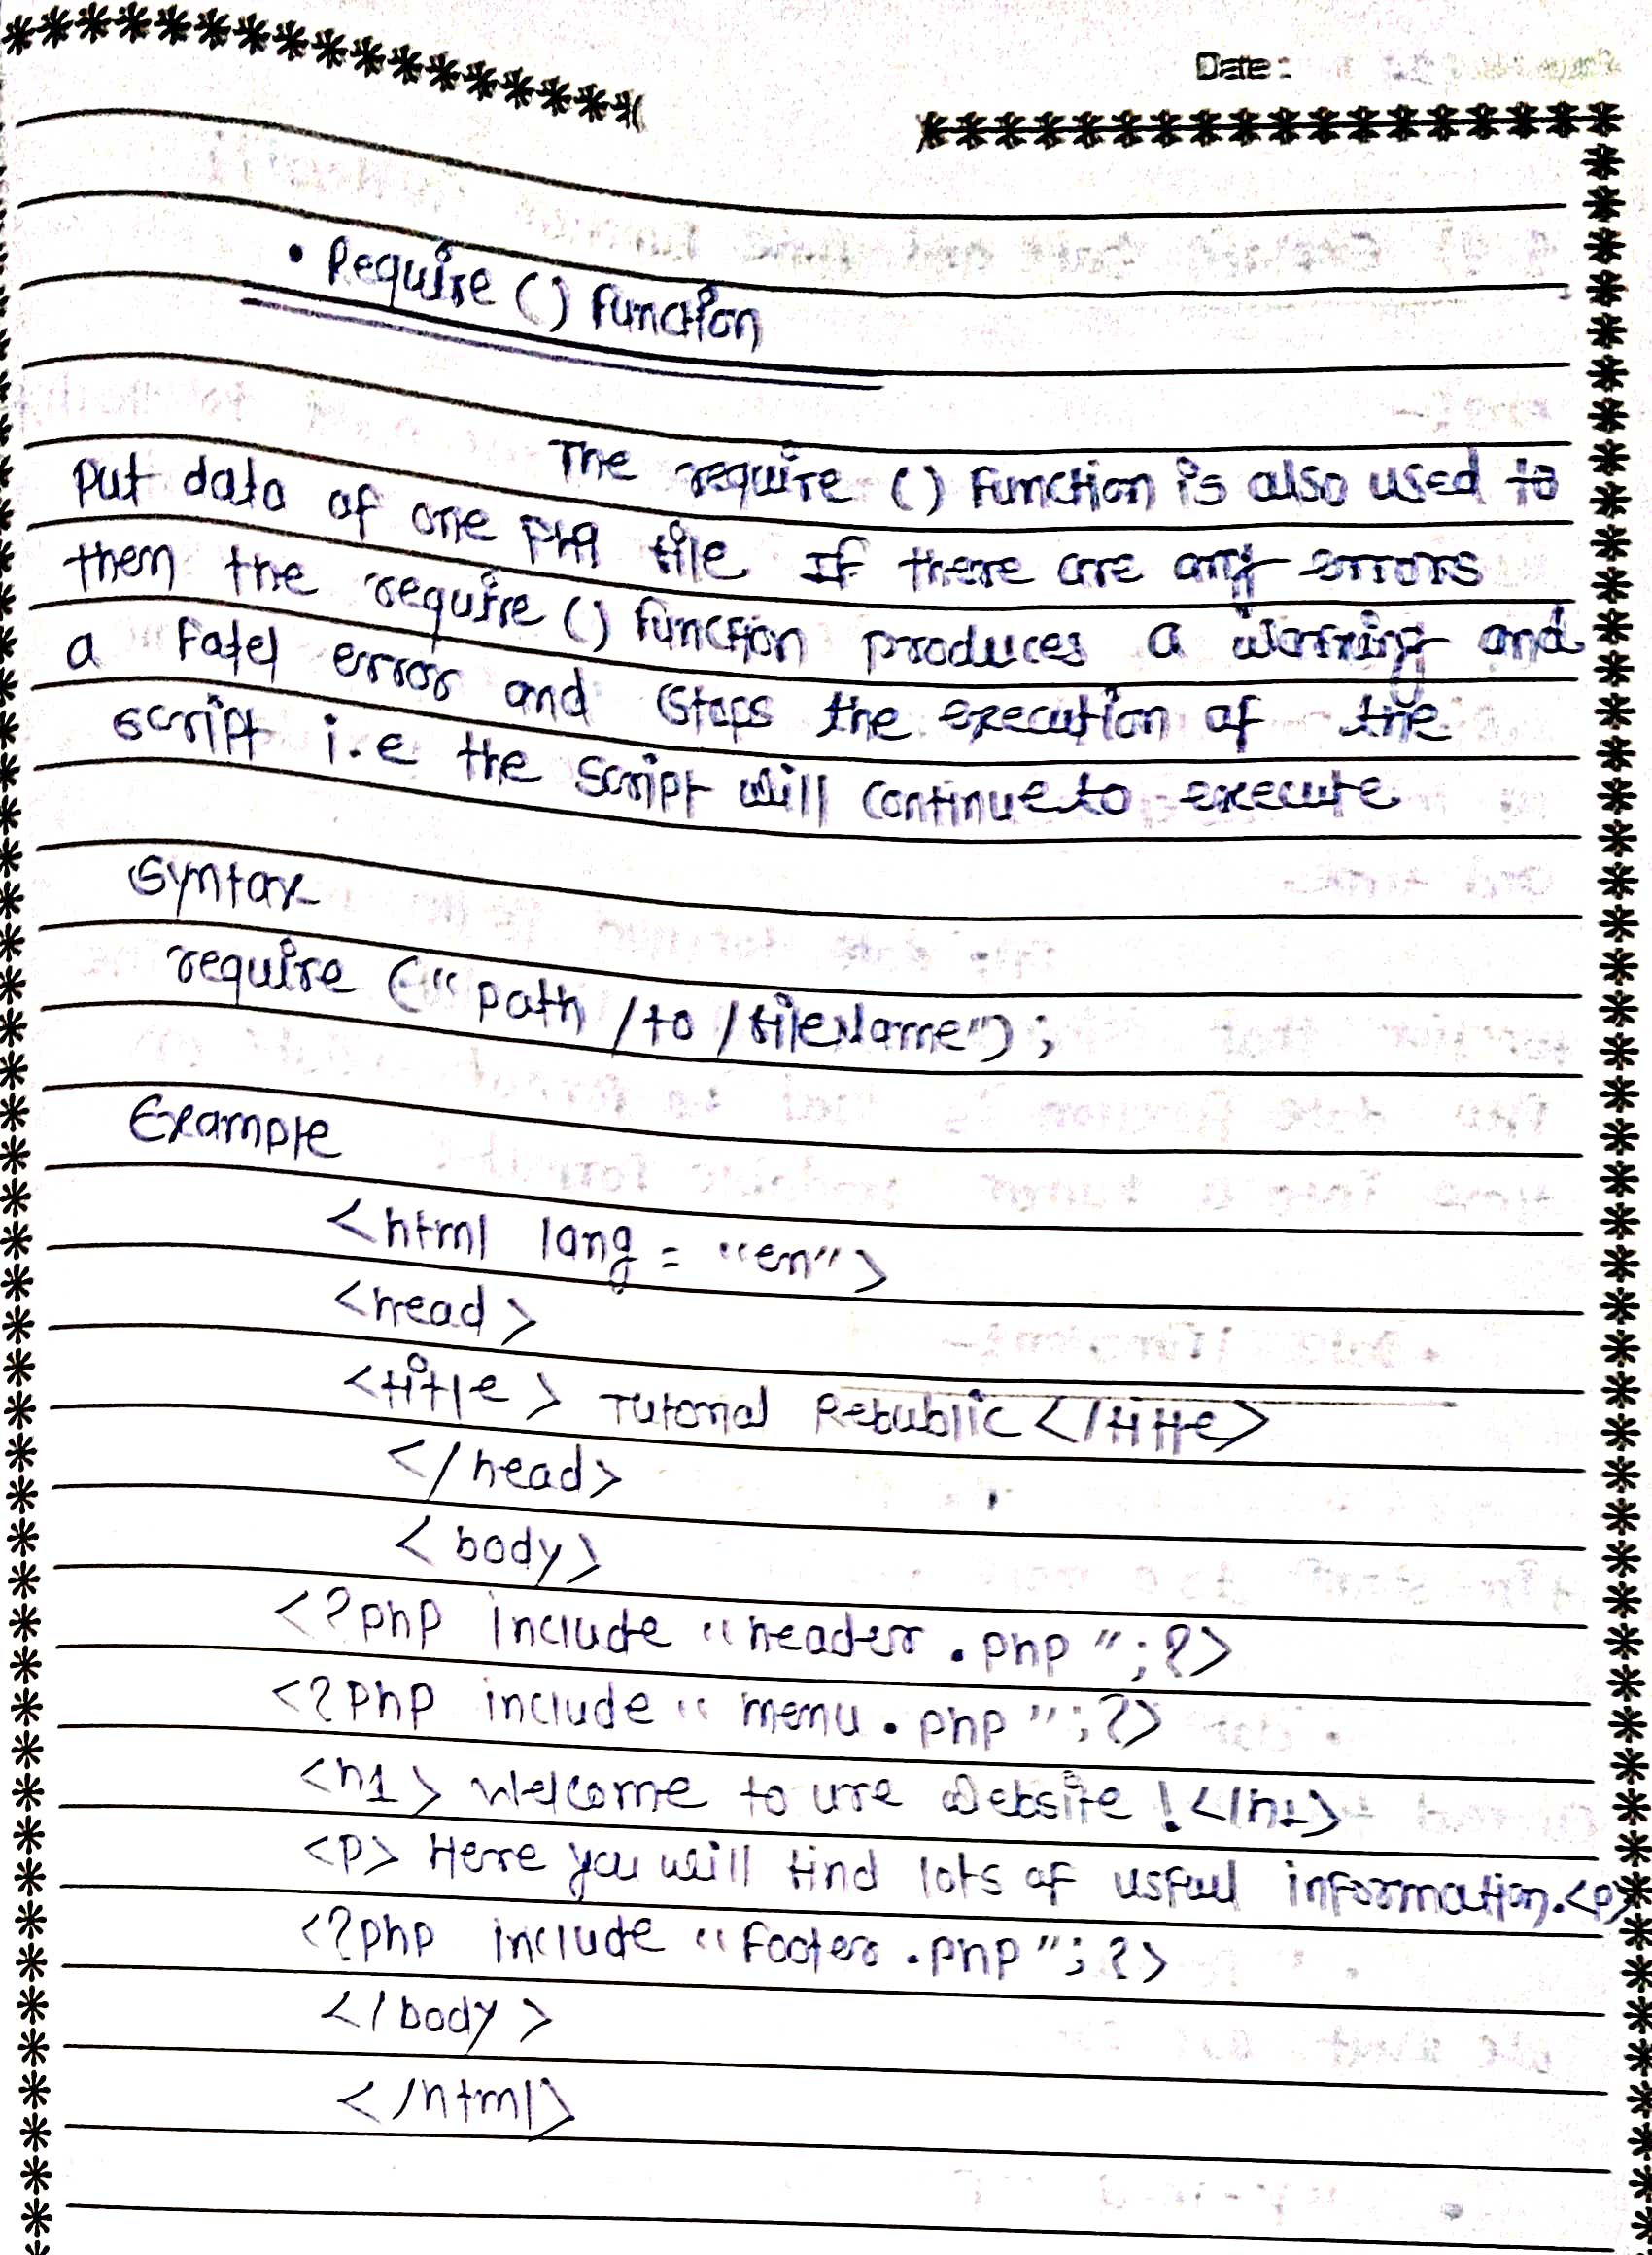 Date:
• Require () Function
The require () Function is also used to
put data of one php file If there are any errors
then the require () Function produces a warning and
a Fatel error and Stops the execution of the
script i.e the script will continue to execute
Syntax
require ("path /to /fileName");
Example
<html lang = "en">
<head>
<title> Tutorial Rebublic </title>
</head>
<body>
<?php include "header.php";?>
<?php include "menu.php";?>
<h1> Welcome to ure website !</h1>
<p> Here you will find lots of usfull information.<p>
<?php include "footer.php";?>
</body>
</html>